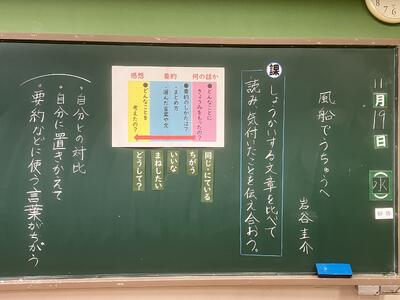 11月19日
(水)
風船でうちゅうへ
岩谷 圭介
課
しょうかいする文章を比べて
読み、気付いたことを伝え合おう。
何の話か
要約
感想
●どんなことに
きょうみをもったの?
●要約のしかたは?
・まとめ方
・選んだ言葉や文
●どんなことを
考えたの?
同じ・にている
ちがう
いいな
まねしたい
どうして?
・自分との対比
・自分に置きかえて
・要約などに使う言葉がちがう